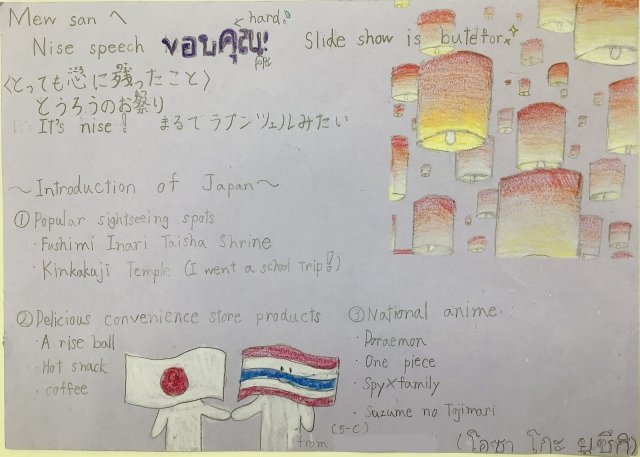 Mew san へ
← hard
Nise speech ขอบคุณ! Slide show is butefor
〈とっても心に残ったこと〉
こころ のこ
とうろうのお祭り
It's nise! まるでラプンツェルみたい
~Introduction of Japan~
① Popular sightseeing spots
・Fushimi Inari Taisha Shrine
・Kinkakuji Temple (I went a school trip!)
② Delicious convenience store products
・A rise ball
・Hot snack
・coffee
③ National anime
・Doraemon
・One piece
・Spy×family
・Suzume no Tojimari
from (5-C)
(โอซา โกะ ยูซึกิ)